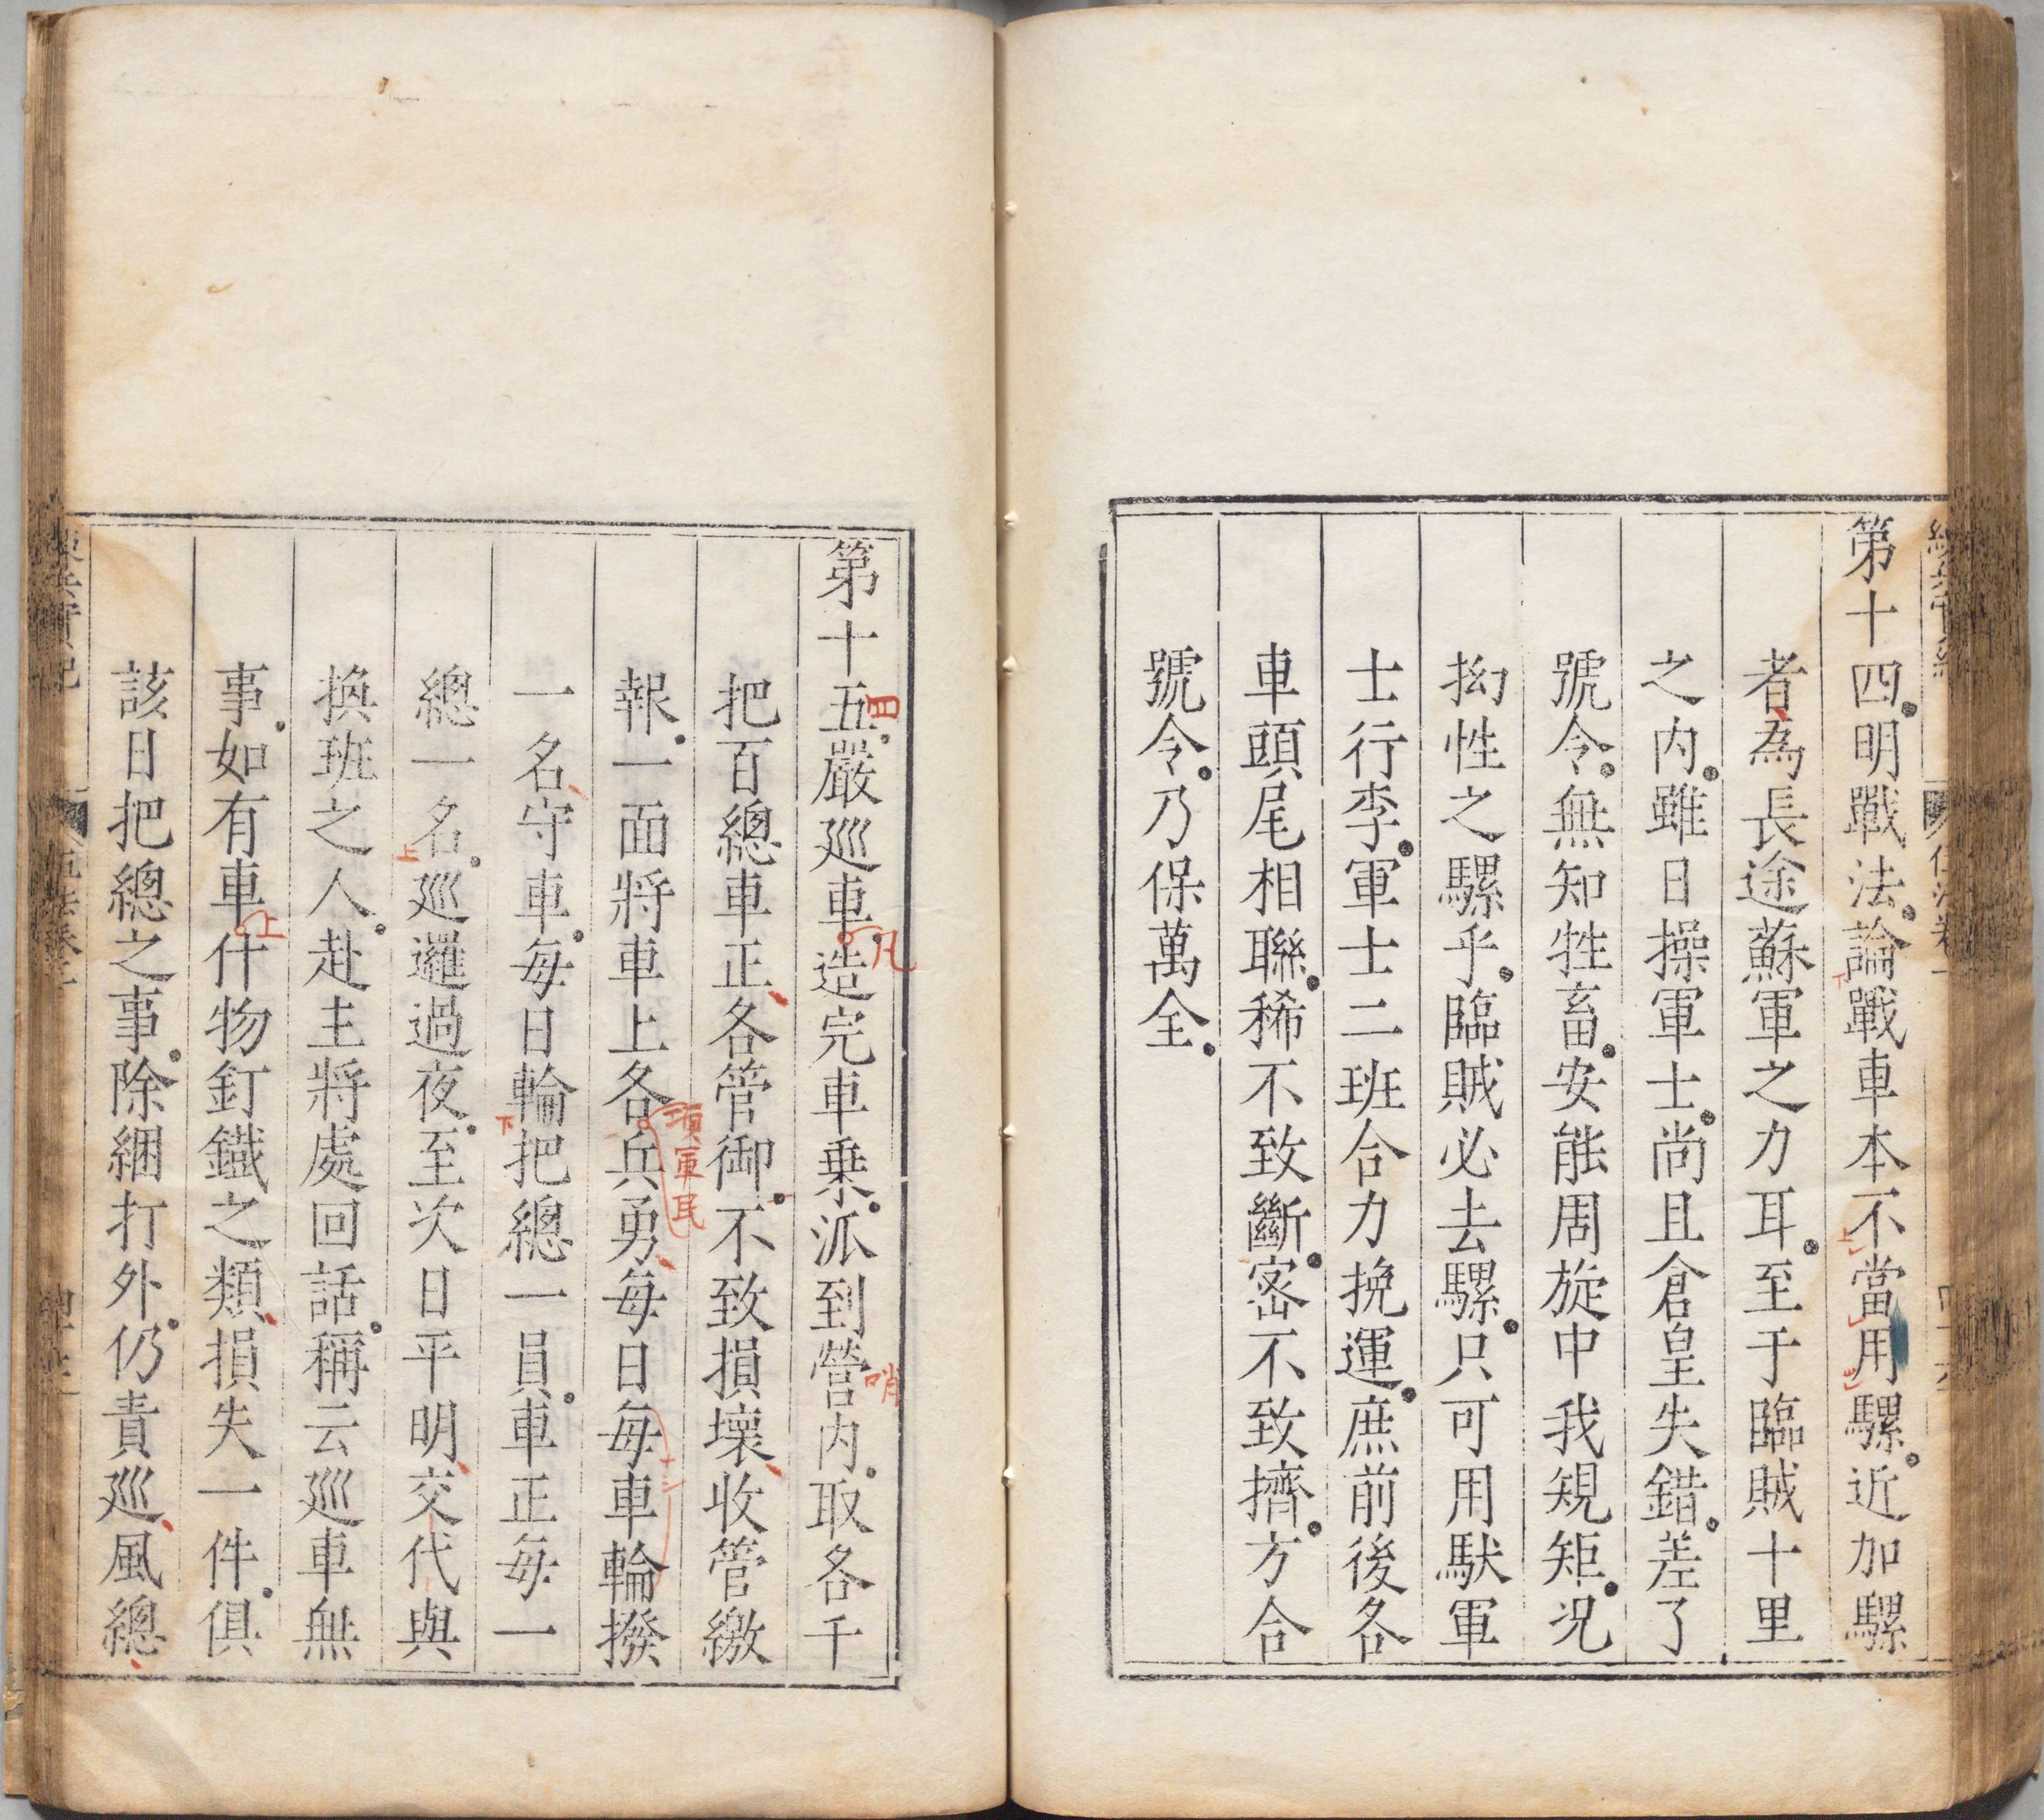 第十四明戰法論戰車本不當用騾近加騾
者為長途蘇軍之力耳至于臨賊十里
之內雖日操軍士尚且倉皇失錯差了
號令無知牲畜安能周旋中我規矩况
拗性之騾乎臨賊必去騾只可用馱軍
士行李軍士二班合力挽運庶前後各
車頭尾相聯稀不致斷密不致擠方合
號令乃保萬全
第十五嚴廵車造完車乗派到營內取各千
把百總車正各管御不致損壞收管繳
報一面將車上各兵勇每日每車輪撥
一名守車每日輪把總一員車正每一
總一名廵邏過夜至次日平明交代與
換班之人赴主將處回話稱云廵車無
事如有車什物釘鐵之類損失一件俱
該日把總之事除綑打外仍責廵風總
凡
哨
項軍民
上
下
上
下
上